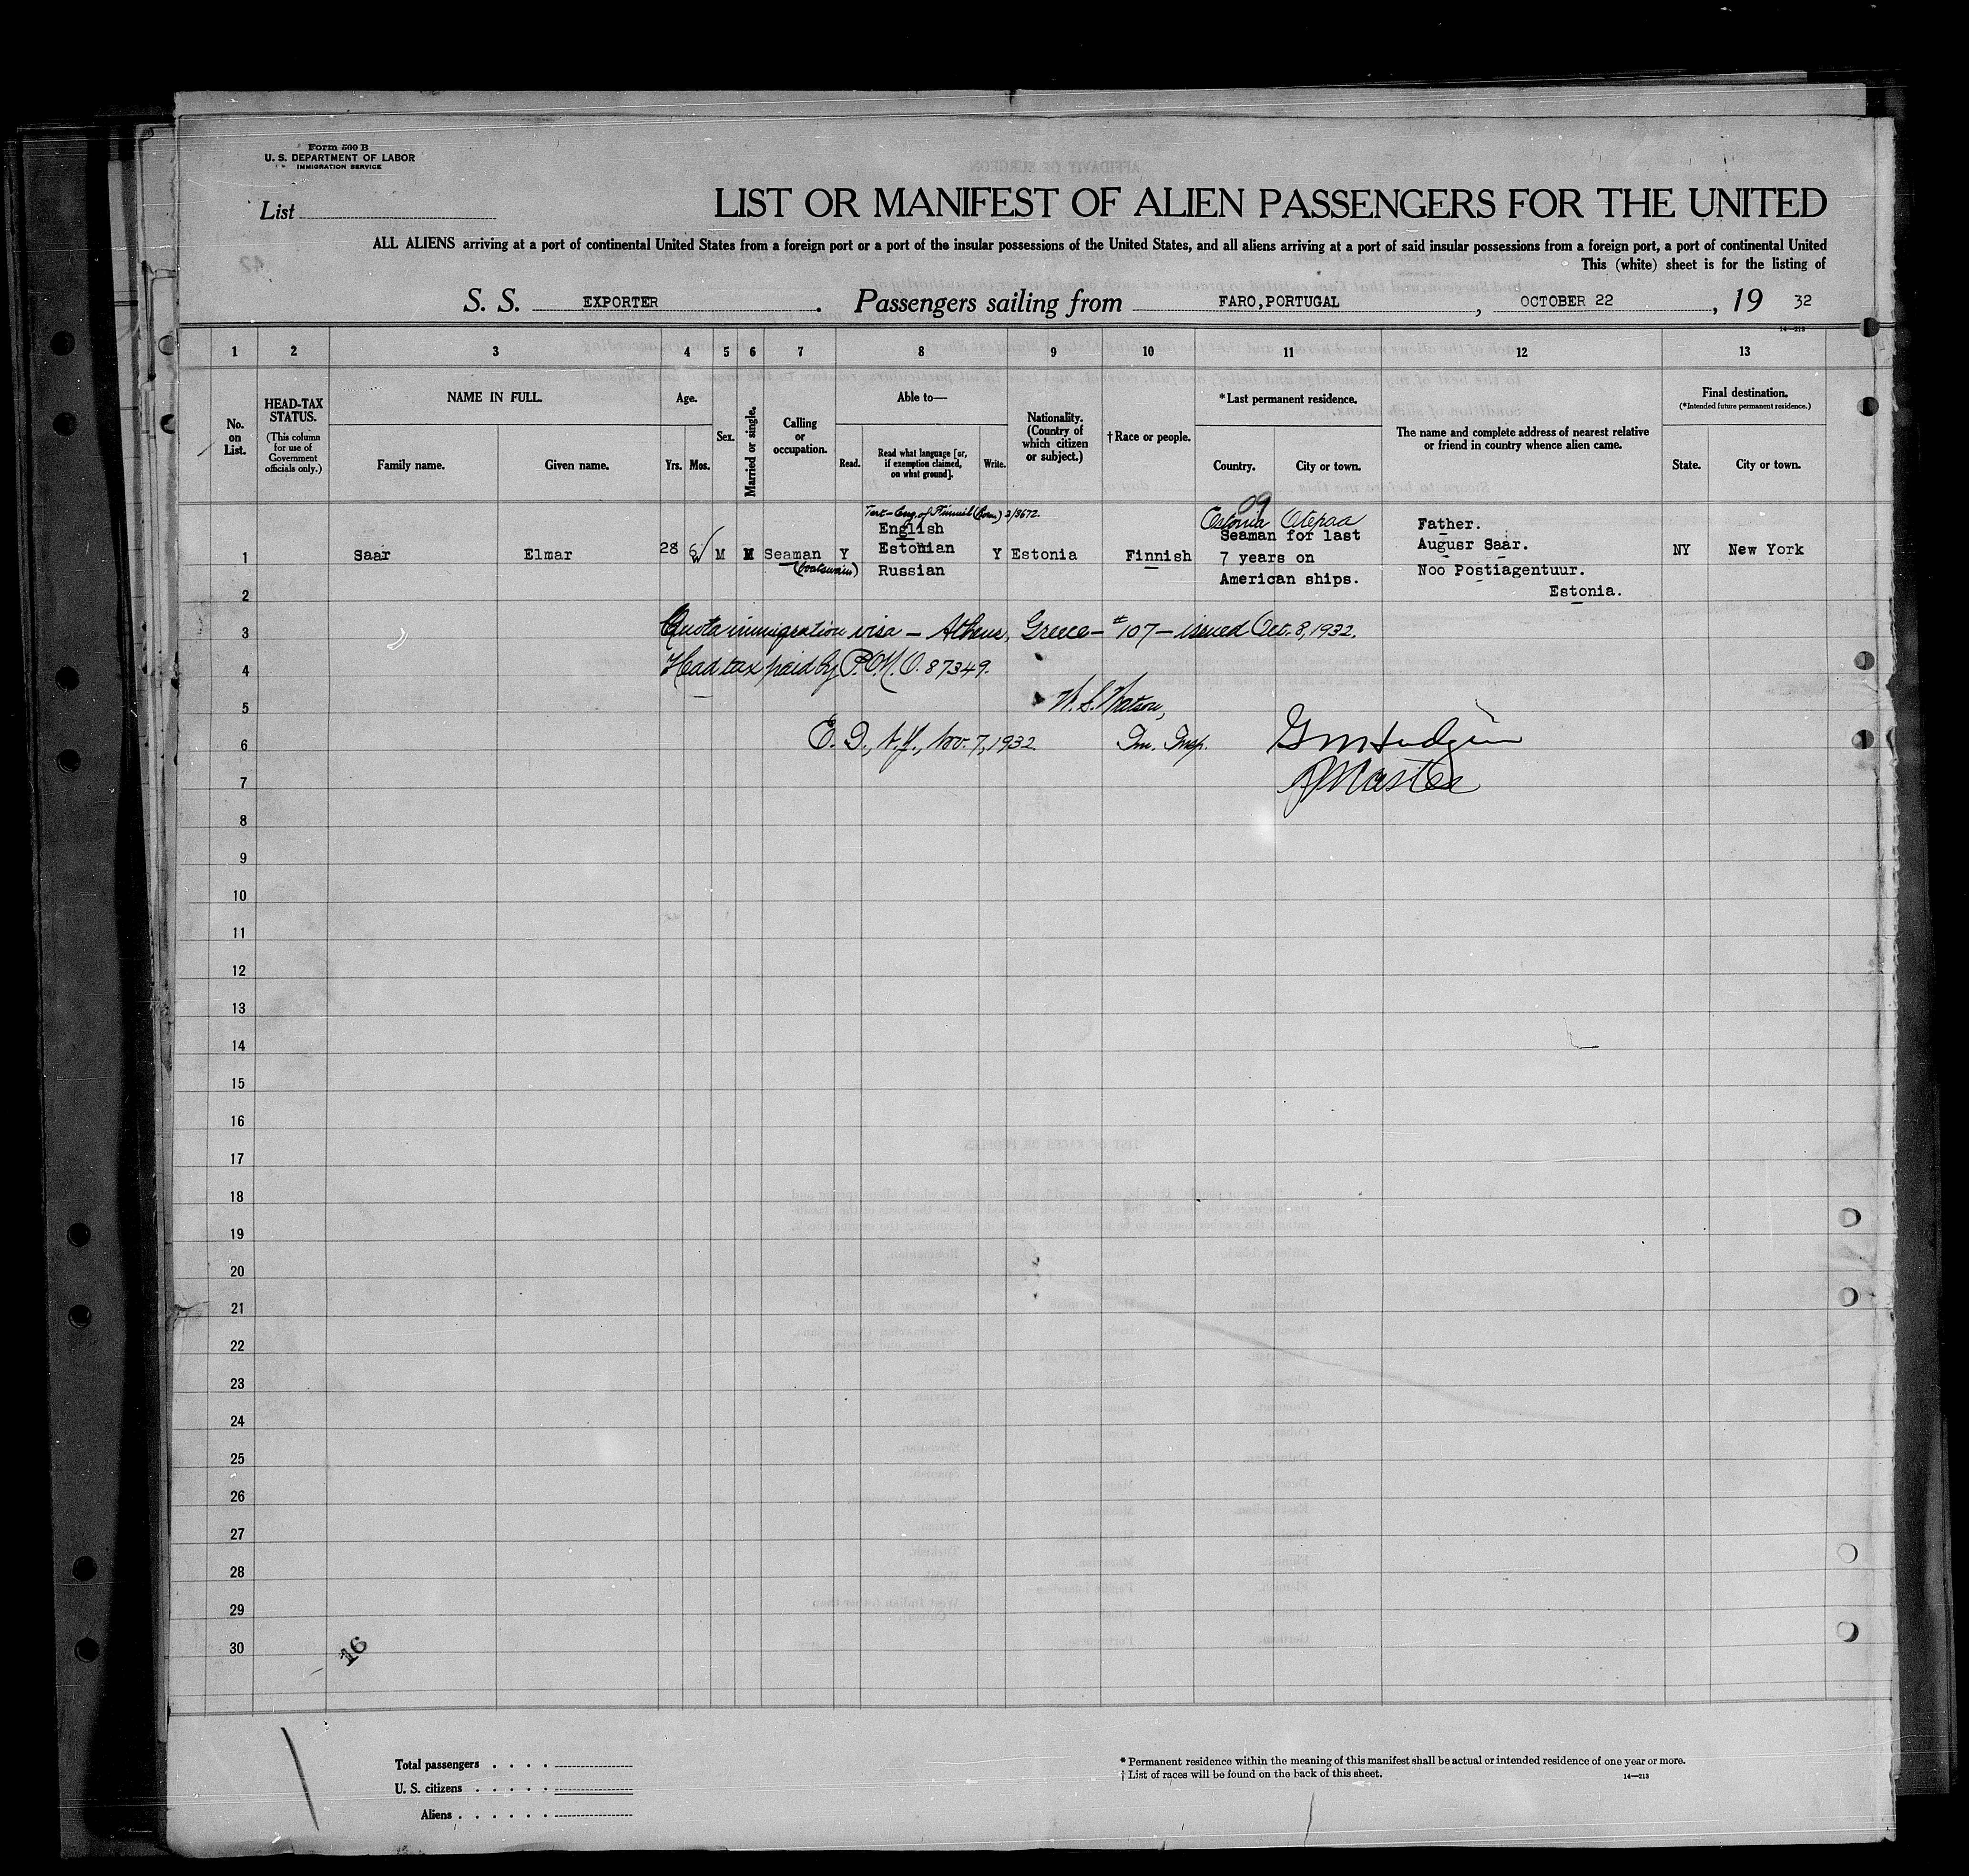 Form 500 B
U. S. DEPARTMENT OF LABOR
IMMIGRATION SERVICE
List
LIST OR MANIFEST OF ALIEN PASSENGERS FOR THE UNITED
ALL ALIENS arriving at a port of continental United States from a foreign port or a port of the insular possessions of the United States, and all aliens arriving at a port of said insular possessions from a foreign port, a port of continental United
This (white) sheet is for the listing of
S. S. EXPORTER. Passengers sailing from FARO,PORTUGAL, OCTOBER 22, 19 32
14—213
1 2 3 4 5 6 7 8 9 10 11 12 13
No. on List.
HEAD-TAX STATUS.
(This column for use of Government officials only.)
NAME IN FULL.
Family name. Given name.
Age.
Yrs. Mos.
Sex.
Married or single.
Calling or occupation.
Able to—
Read. Read what language [or, if exemption claimed, on what ground]. Write.
Nationality. (Country of which citizen or subject.)
†Race or people.
*Last permanent residence.
Country. City or town.
The name and complete address of nearest relative or friend in country whence alien came.
Final destination.
(*Intended future permanent residence.)
State. City or town.
09
1 Saar Elmar 28 6 M M Seaman (boatswain) Y English Estonian Russian Y Estonia Finnish
Estonia Otepaa
Seaman for last
7 years on
American ships.
Father.
Augusr Saar.
Noo Postiagentuur.
Estonia.
NY New York
2
3 Quota immigration visa — Athens, Greece — #107 — issued Oct. 8, 1932.
4 Head tax paid by P.O.M.O. 87349.
5 W. S. Watson,
6 E. D., N.Y., Nov. 7, 1932. Im. Insp.
7 Master
8
9
10
11
12
13
14
15
16
17
18
19
20
21
22
23
24
25
26
27
28
29
30
16
Total passengers
U. S. citizens
Aliens
* Permanent residence within the meaning of this manifest shall be actual or intended residence of one year or more.
† List of races will be found on the back of this sheet.
14—213